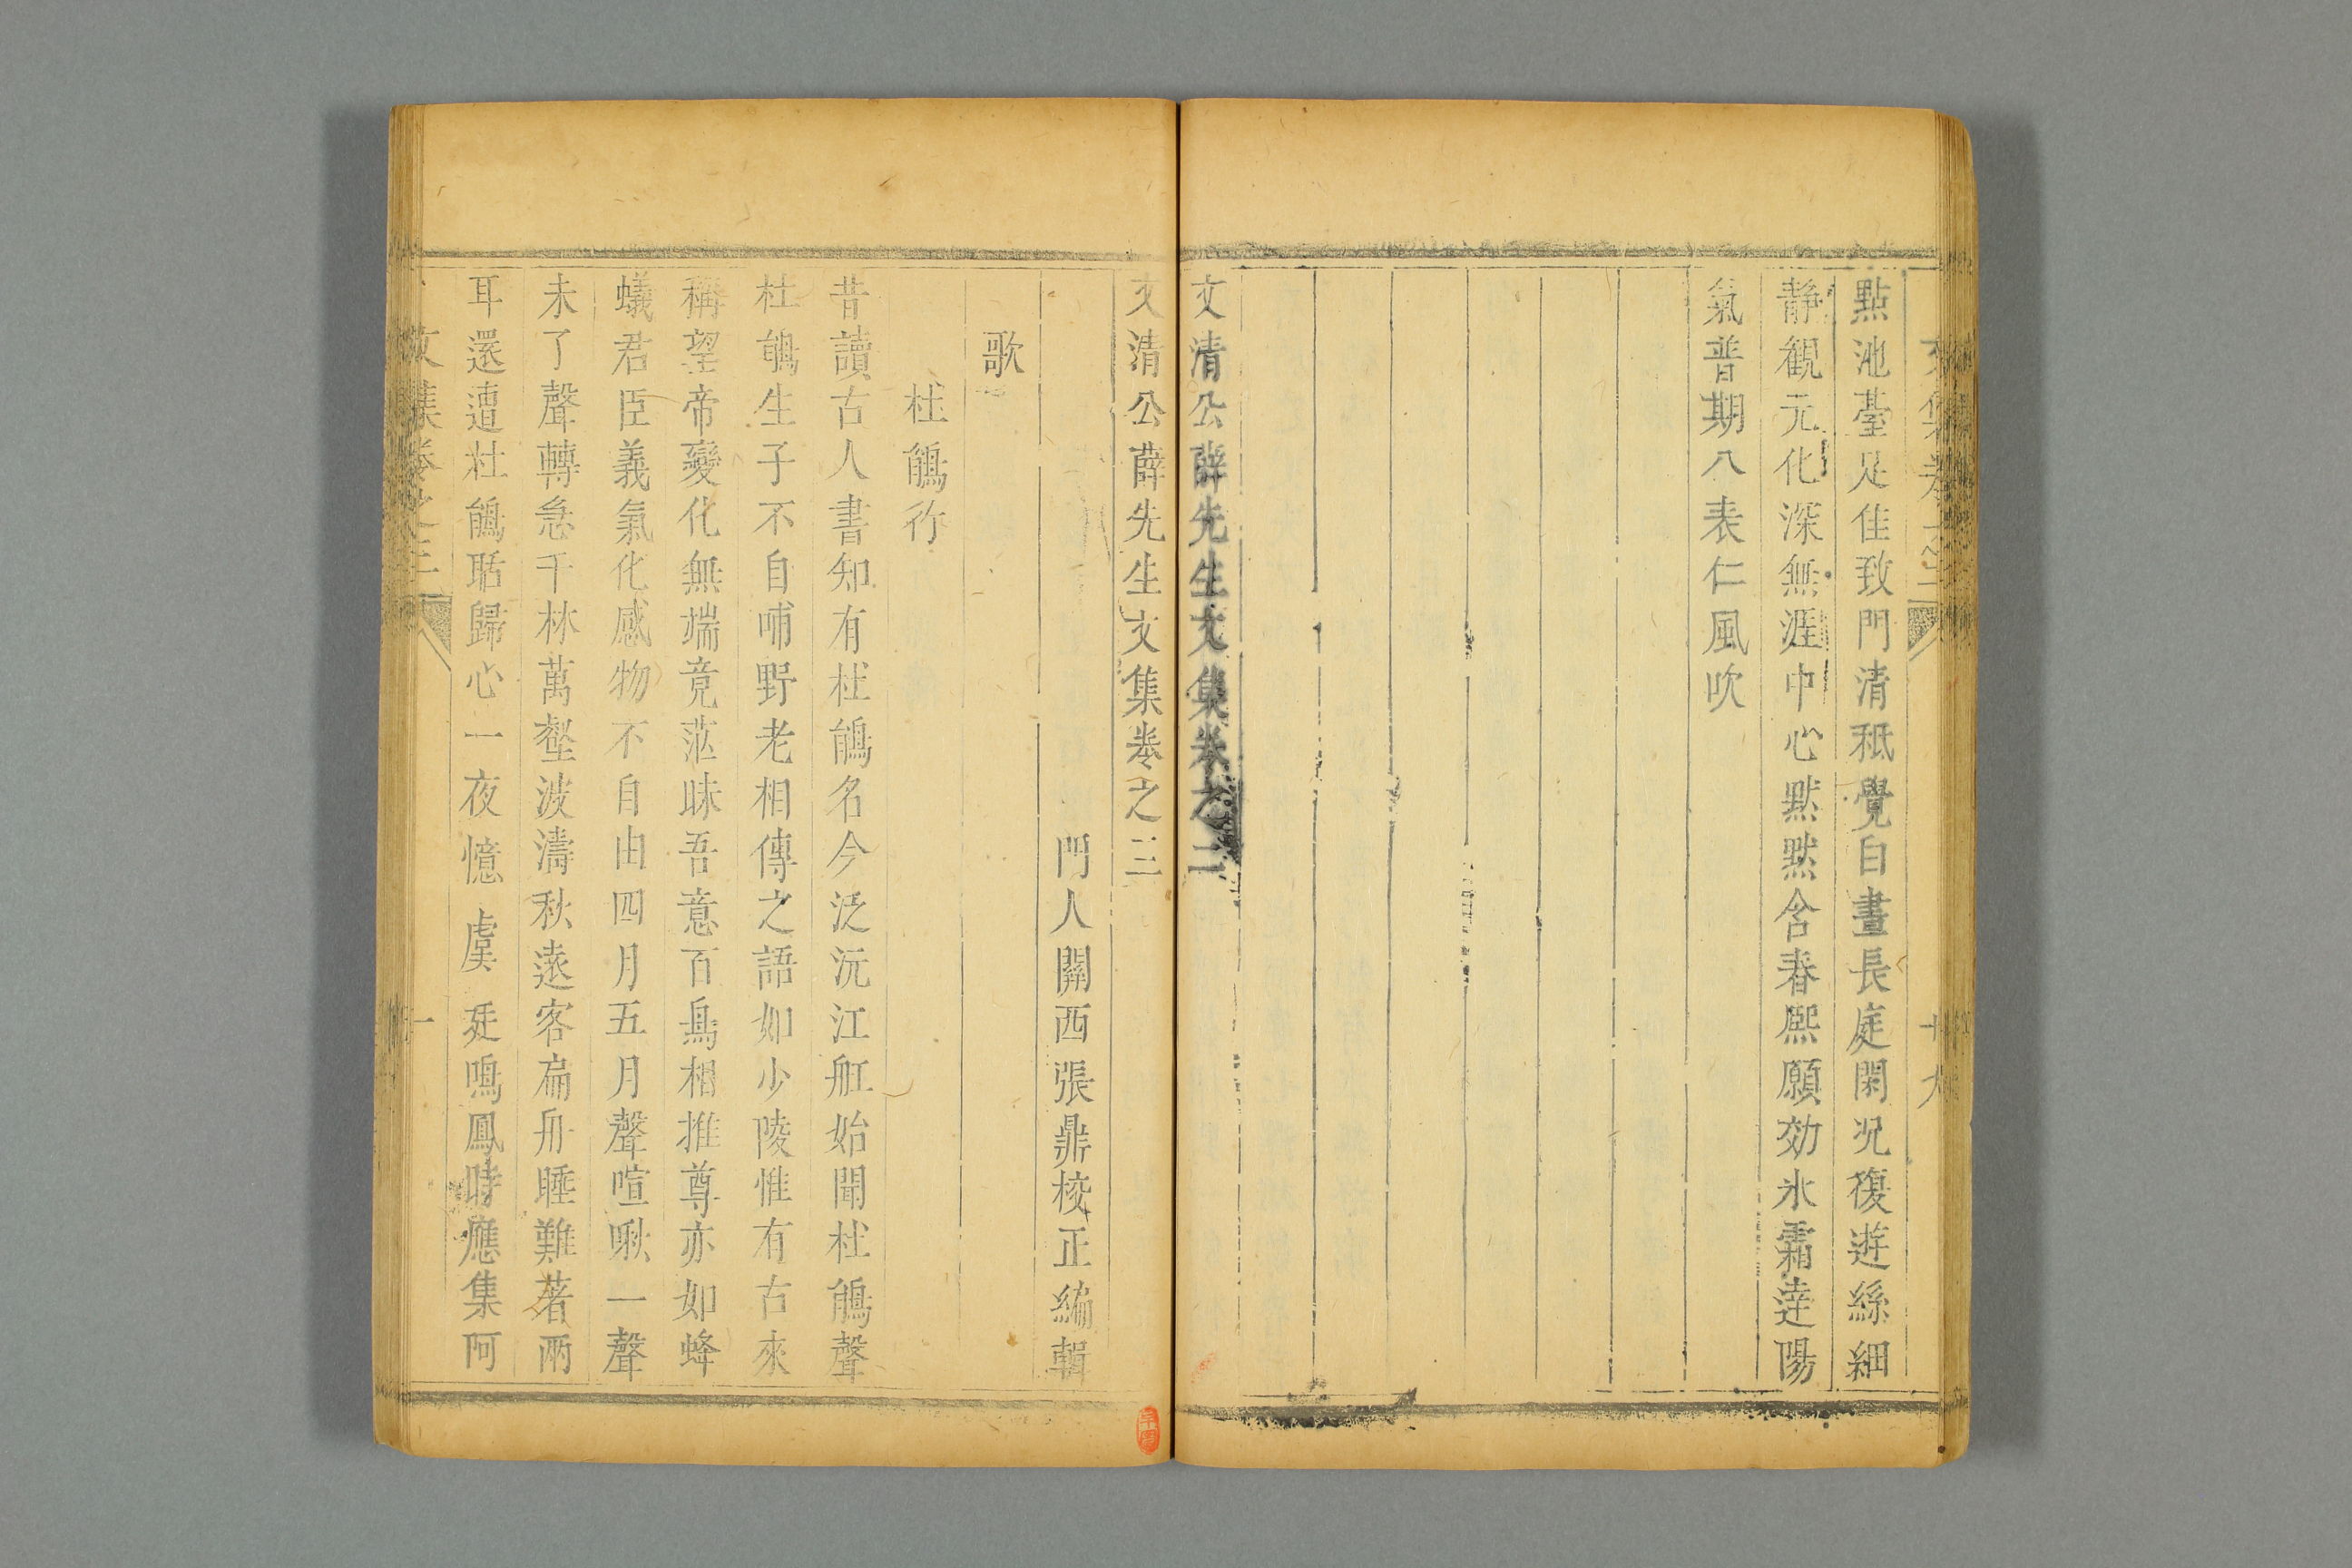 點池臺足佳致門清秪覺白晝長庭閑况復遊絲細
静觀元化深無涯中心黙黙含春熈願効氷霜逹陽
氣普期八表仁風吹
文清公薛先生文集卷之二
文清公薛先生文集卷之三
門人關西張鼎校正編輯
歌
杜鵑行
昔讀古人書知有杜鵑名今泛沅江舡始聞杜鵑聲
杜鵑生子不自哺野老相傳之語如少陵惟有古來
稱望帝變化無端竟茫昧吾意百鳥相推尊亦如蜂
蟻君臣義氣化感物不自由四月五月聲喧啾一聲
未了聲轉急千林萬壑波濤秋逺客扁舟睡難著兩
耳還遭杜鵑聒歸心一夜憶虞廷鳴鳳時應集阿
文集卷之三
一